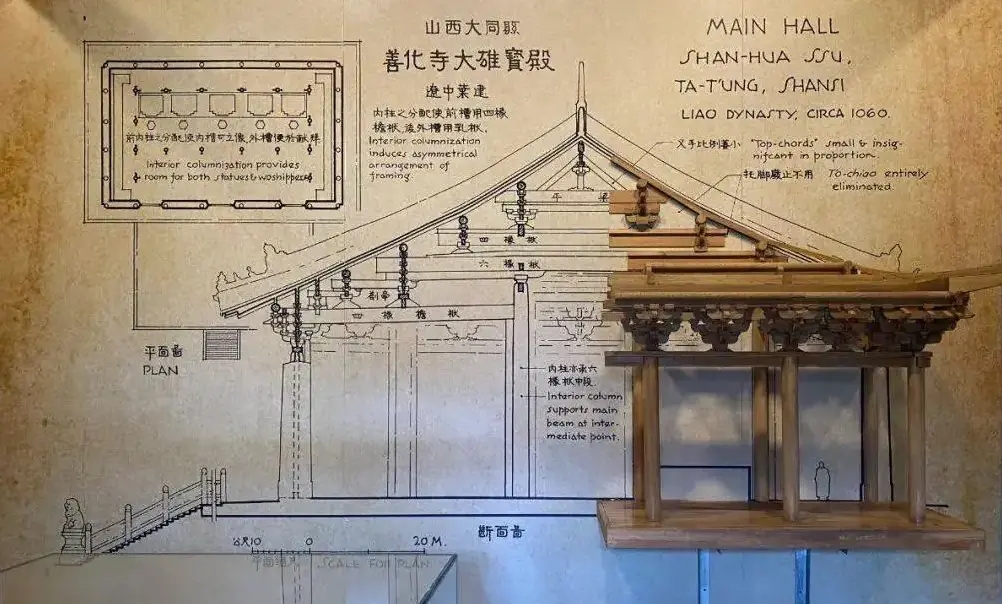 山西大同縣
善化寺大雄寶殿
遼中葉建
內柱之分配使前槽用四椽
檐栿,後外槽用乳栿.
Interior columnization
induces asymmetrical
arrangement of
framing.
MAIN HALL
SHAN-HUA SSU,
TA-T'UNG, SHANSI
LIAO DYNASTY, CIRCA 1060.
叉手比例甚小 "Top-chords" small & insig-
nificant in proportion.
托脚廢止不用 To-chiao entirely
eliminated.
前內柱之分配使內槽可立像,外槽便於獻拜
Interior columnization provides
room for both statues & woshippers
平 梁
四 椽 栿
六 椽 栿
劄牽
四 椽 檐 栿
內柱亦承六
椽栿中段
Interior column
supports main
beam at inter-
mediate point.
平面圖
PLAN
斷面圖
10 0 20 M.
SCALE FOR PLAN